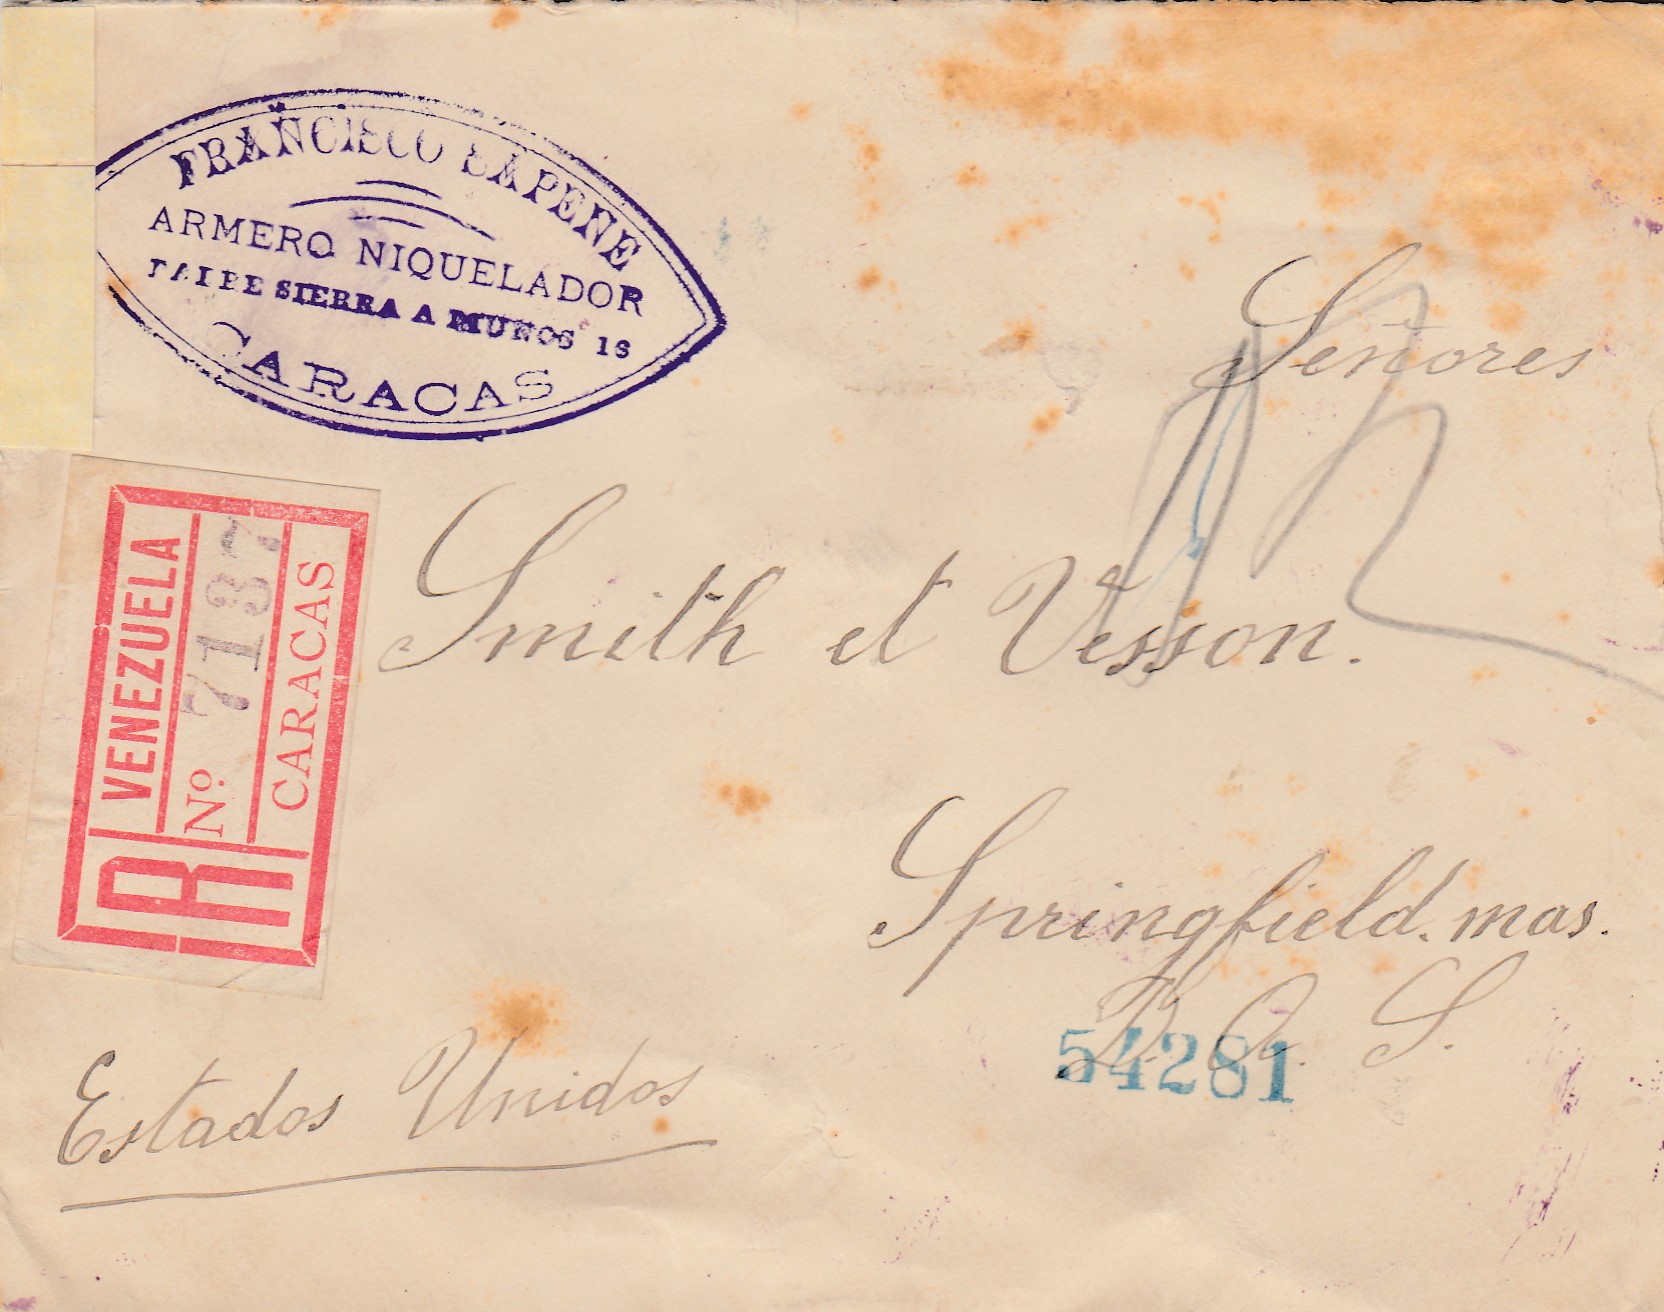 FRANCISCO SAPENE
ARMERO NIQUELADOR
SIERRA A MUÑOS 18
CARACAS
R
VENEZUELA
Nº 7137
CARACAS
Señores
Smith et Vesson.
Springfield. mas.
S.
54281
Estados Unidos